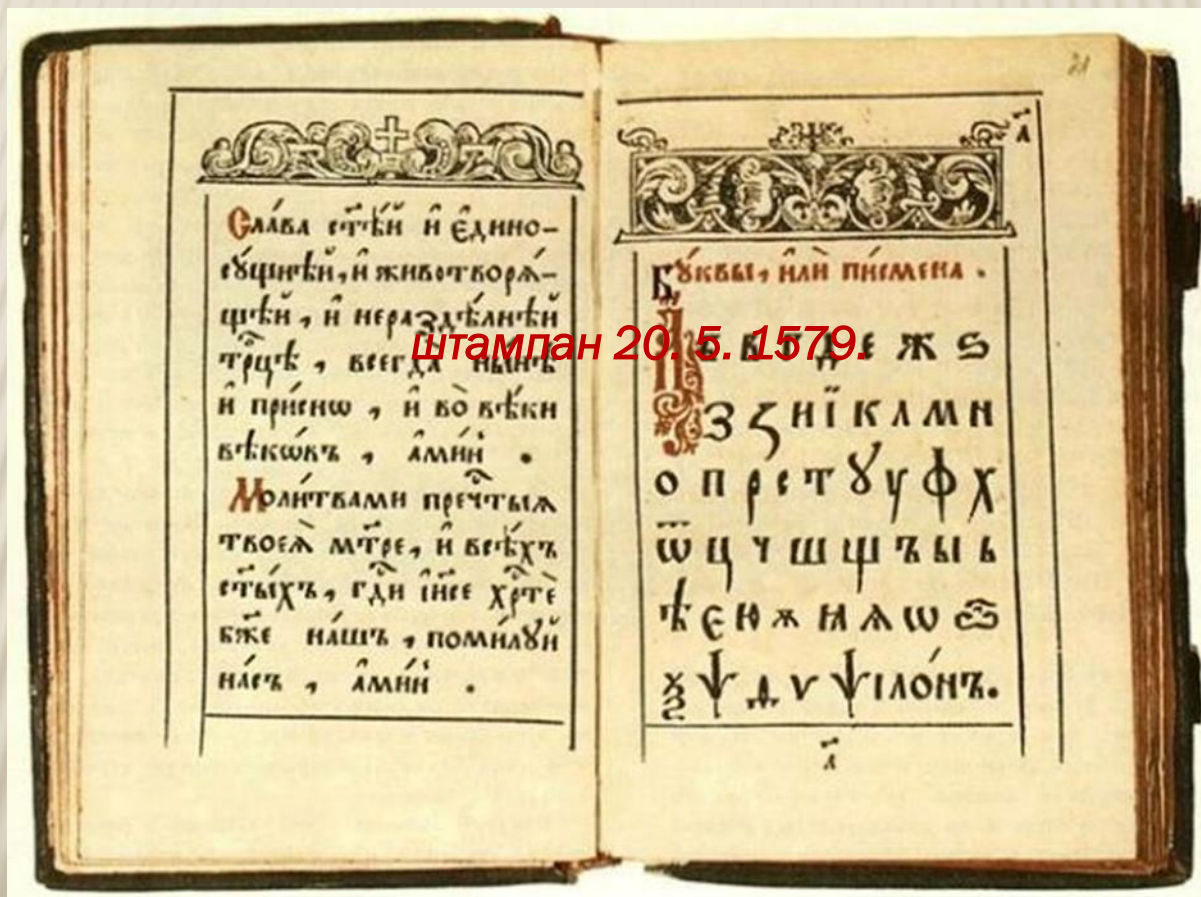 Сла́ва ст҃ѣ́й и҆ є҆дино-
су́щнѣй, и҆ животворѧ́-
щѣй, и҆ нераздѣ́лнѣй
трⷪ҇цѣ, всегда̀ ны́нѣ
и҆ при́снѡ, и҆ во̀ вѣ́ки
вѣкѡ́въ, а҆ми́нь.
Моли́твами пречⷭ҇тыѧ
твоеѧ̀ мт҃ре, и҆ всѣ́хъ
ст҃ы́хъ, гдⷭ҇и і҆и҃се хрⷭ҇тѐ
бж҃е на́шъ, поми́лꙋй
на́съ, а҆ми́нь.
21
а҃
Бꙋ́квы, и҆лѝ пи́смена.
А б в г д е ж ѕ
з ꙁ и ї к л м н
о п р с т ꙋ у ф х
ѿ ц ч ш щ ъ ы ь
ѣ є ю ѫ ꙗ ѧ ѡ
ѯ ѱ ѳ ѵ ѱїло́нъ.
а҃
штампан 20. 5. 1579.